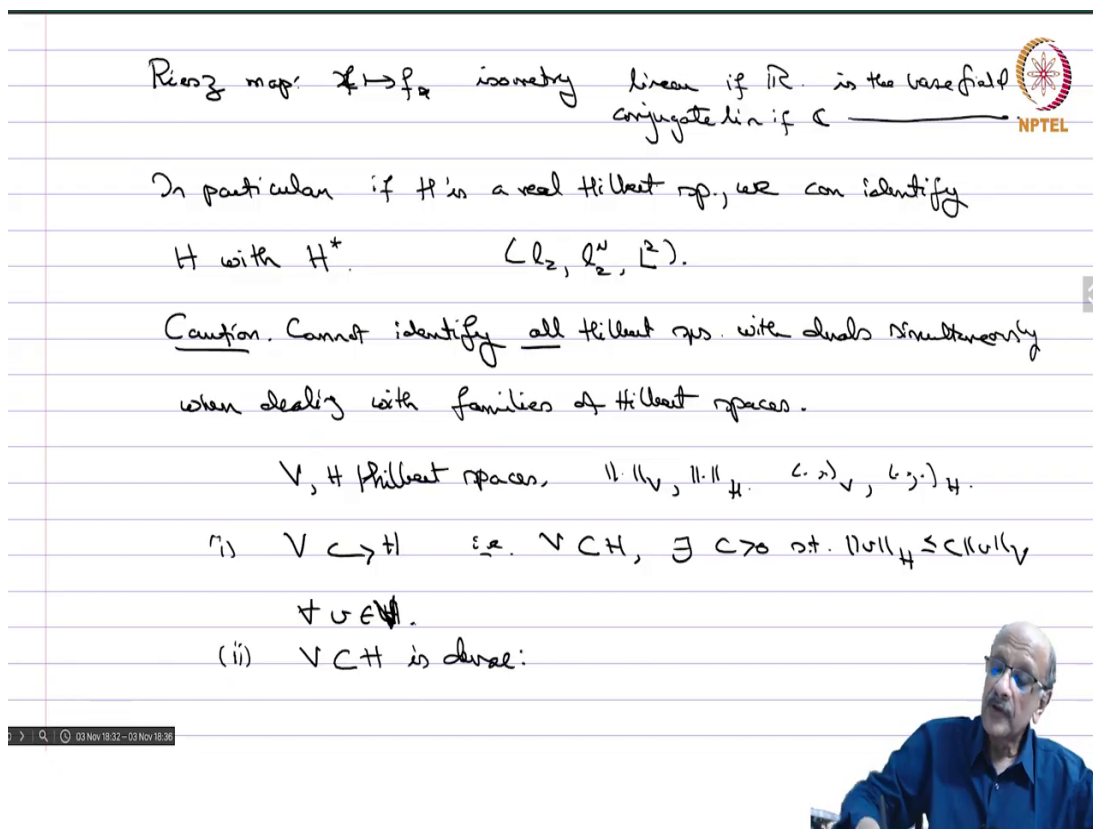 Riesz map: x ↦ f_x isometry linear if ℝ is the base field
conjugate lin if ℂ ———
NPTEL
In particular if H is a real Hilbert sp., we can identify
H with H*. (l₂, l₂ᴺ, L²).
Caution. Cannot identify all Hilbert sps. with duals simultaneously
when dealing with families of Hilbert spaces.
V, H Hilbert spaces, ‖·‖_V, ‖·‖_H. (·,·)_V, (·,·)_H.
(i) V ↪ H i.e. V ⊂ H, ∃ C>0 s.t. ‖v‖_H ≤ C‖v‖_V
∀ v ∈ V.
(ii) V ⊂ H is dense:
03 Nov 18:32 – 03 Nov 18:36